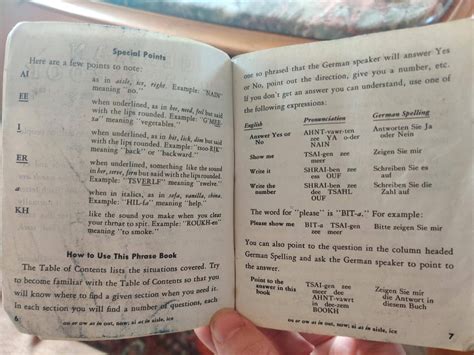 Special Points
Here are a few points to note:
AI as in aisle, ice, right. Example: "NAIN"
meaning "no."
EE when underlined, as in bee, need, feel but said
with the lips rounded. Example: "G'MEE-
za" meaning "vegetables."
I when underlined, as in bit, lick, dim but said
with the lips rounded. Example: "tsoo-RIK"
meaning "back" or "backward."
ER when underlined, something like the sound
in her, fern but said with the lips rounded.
Example: "TSVERLF" meaning "twelve."
a when in italics, as in sofa, vanilla, china.
Example: "HIL-fa" meaning "help."
KH like the sound you make when you clear
your throat to spit. Example: "ROUKH-en"
meaning "to smoke."
How to Use This Phrase Book
The Table of Contents lists the situations covered. Try
to become familiar with the Table of Contents so that you
will know where to find a given section when you need it.
In each section you will find a number of questions, each
6
ou or ow as in out, now; ai as in aisle, ice
one so phrased that the German speaker will answer Yes
or No, point out the direction, give you a number, etc.
If you don't get an answer you can understand, use one of
the following expressions:
English Pronunciation German Spelling
Answer Yes or No AHNT-vawr-ten zee YA o-der NAIN Antworten Sie Ja oder Nein
Show me TSAI-gen zee meer Zeigen Sie mir
Write it SHRAI-ben zee ess OUF Schreiben Sie es auf
Write the number SHRAI-ben zee dee TSAHL OUF Schreiben Sie die Zahl auf
The word for "please" is "BIT-a." For example:
Please show me BIT-a TSAI-gen zee meer Bitte zeigen Sie mir
You can also point to the question in the column headed
German Spelling and ask the German speaker to point to
the answer.
Point to the answer in this book TSAI-gen zee meer dee AHNT-vawrt in dee-zem BOOKH Zeigen Sie mir die Antwort in diesem Buch
ou or ow as in out, now; ai as in aisle, ice
7